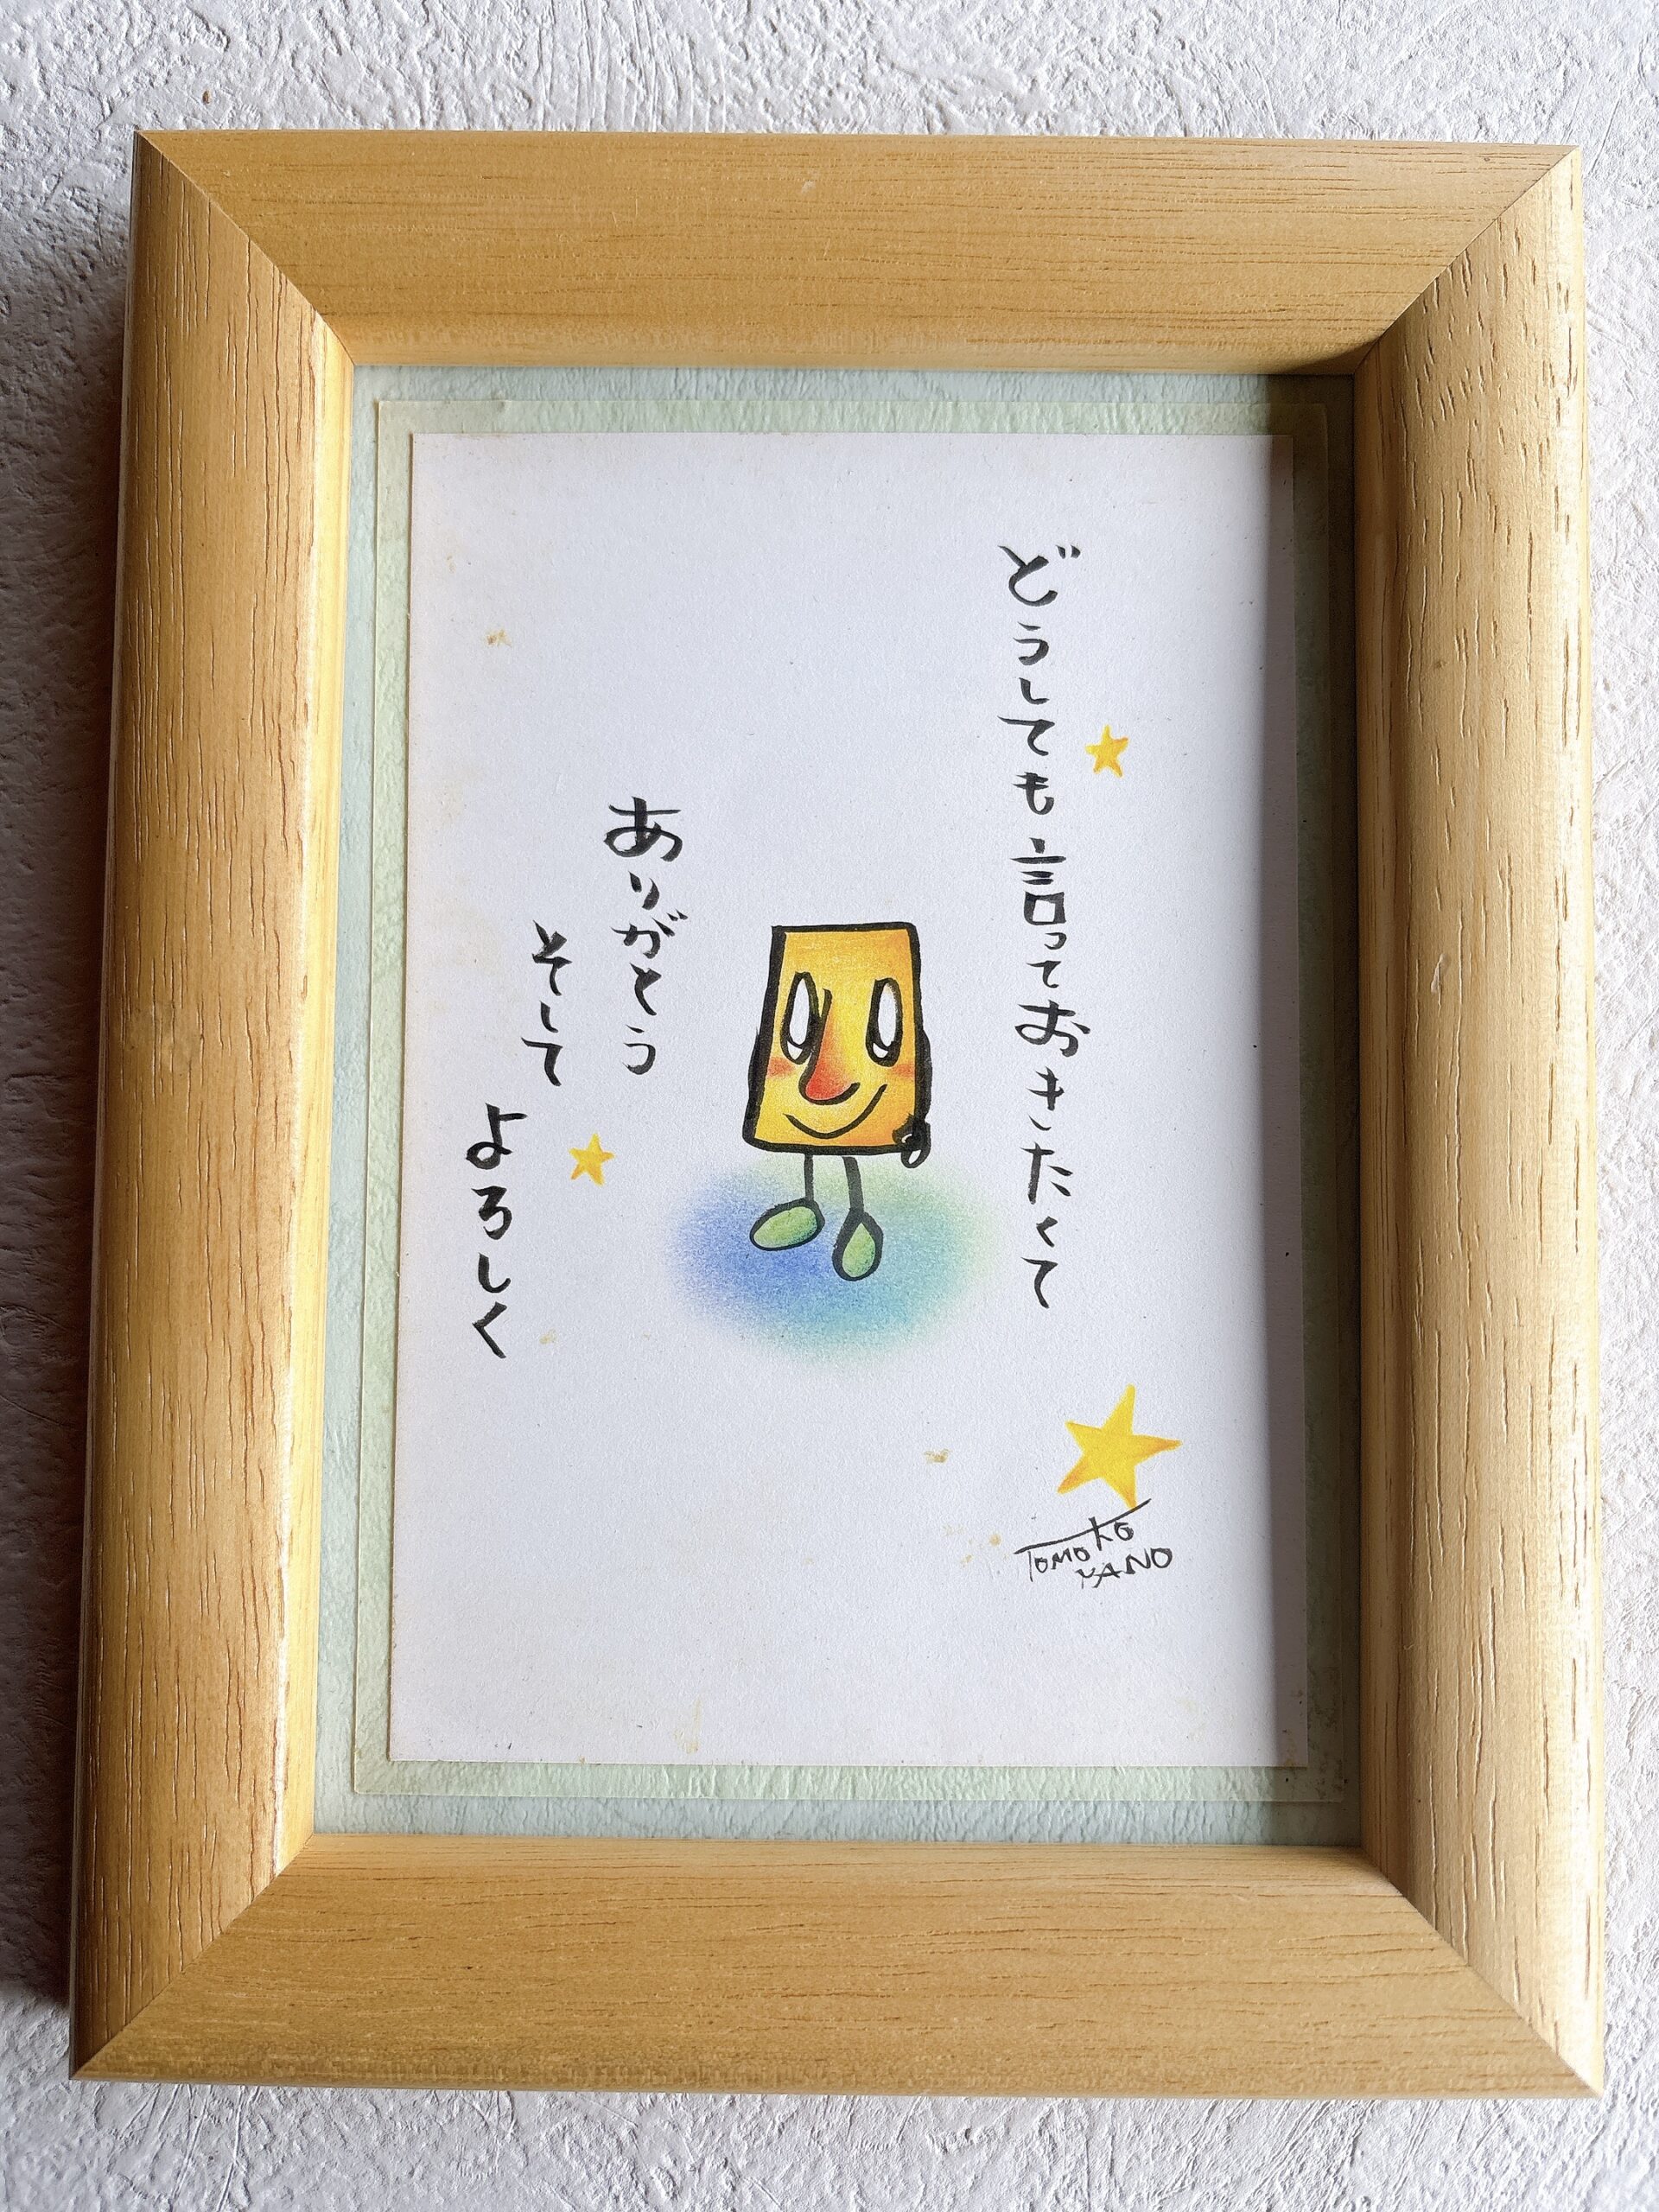 どうしても言っておきたくて
ありがとう
そして
よろしく
TOMOKO
YANO